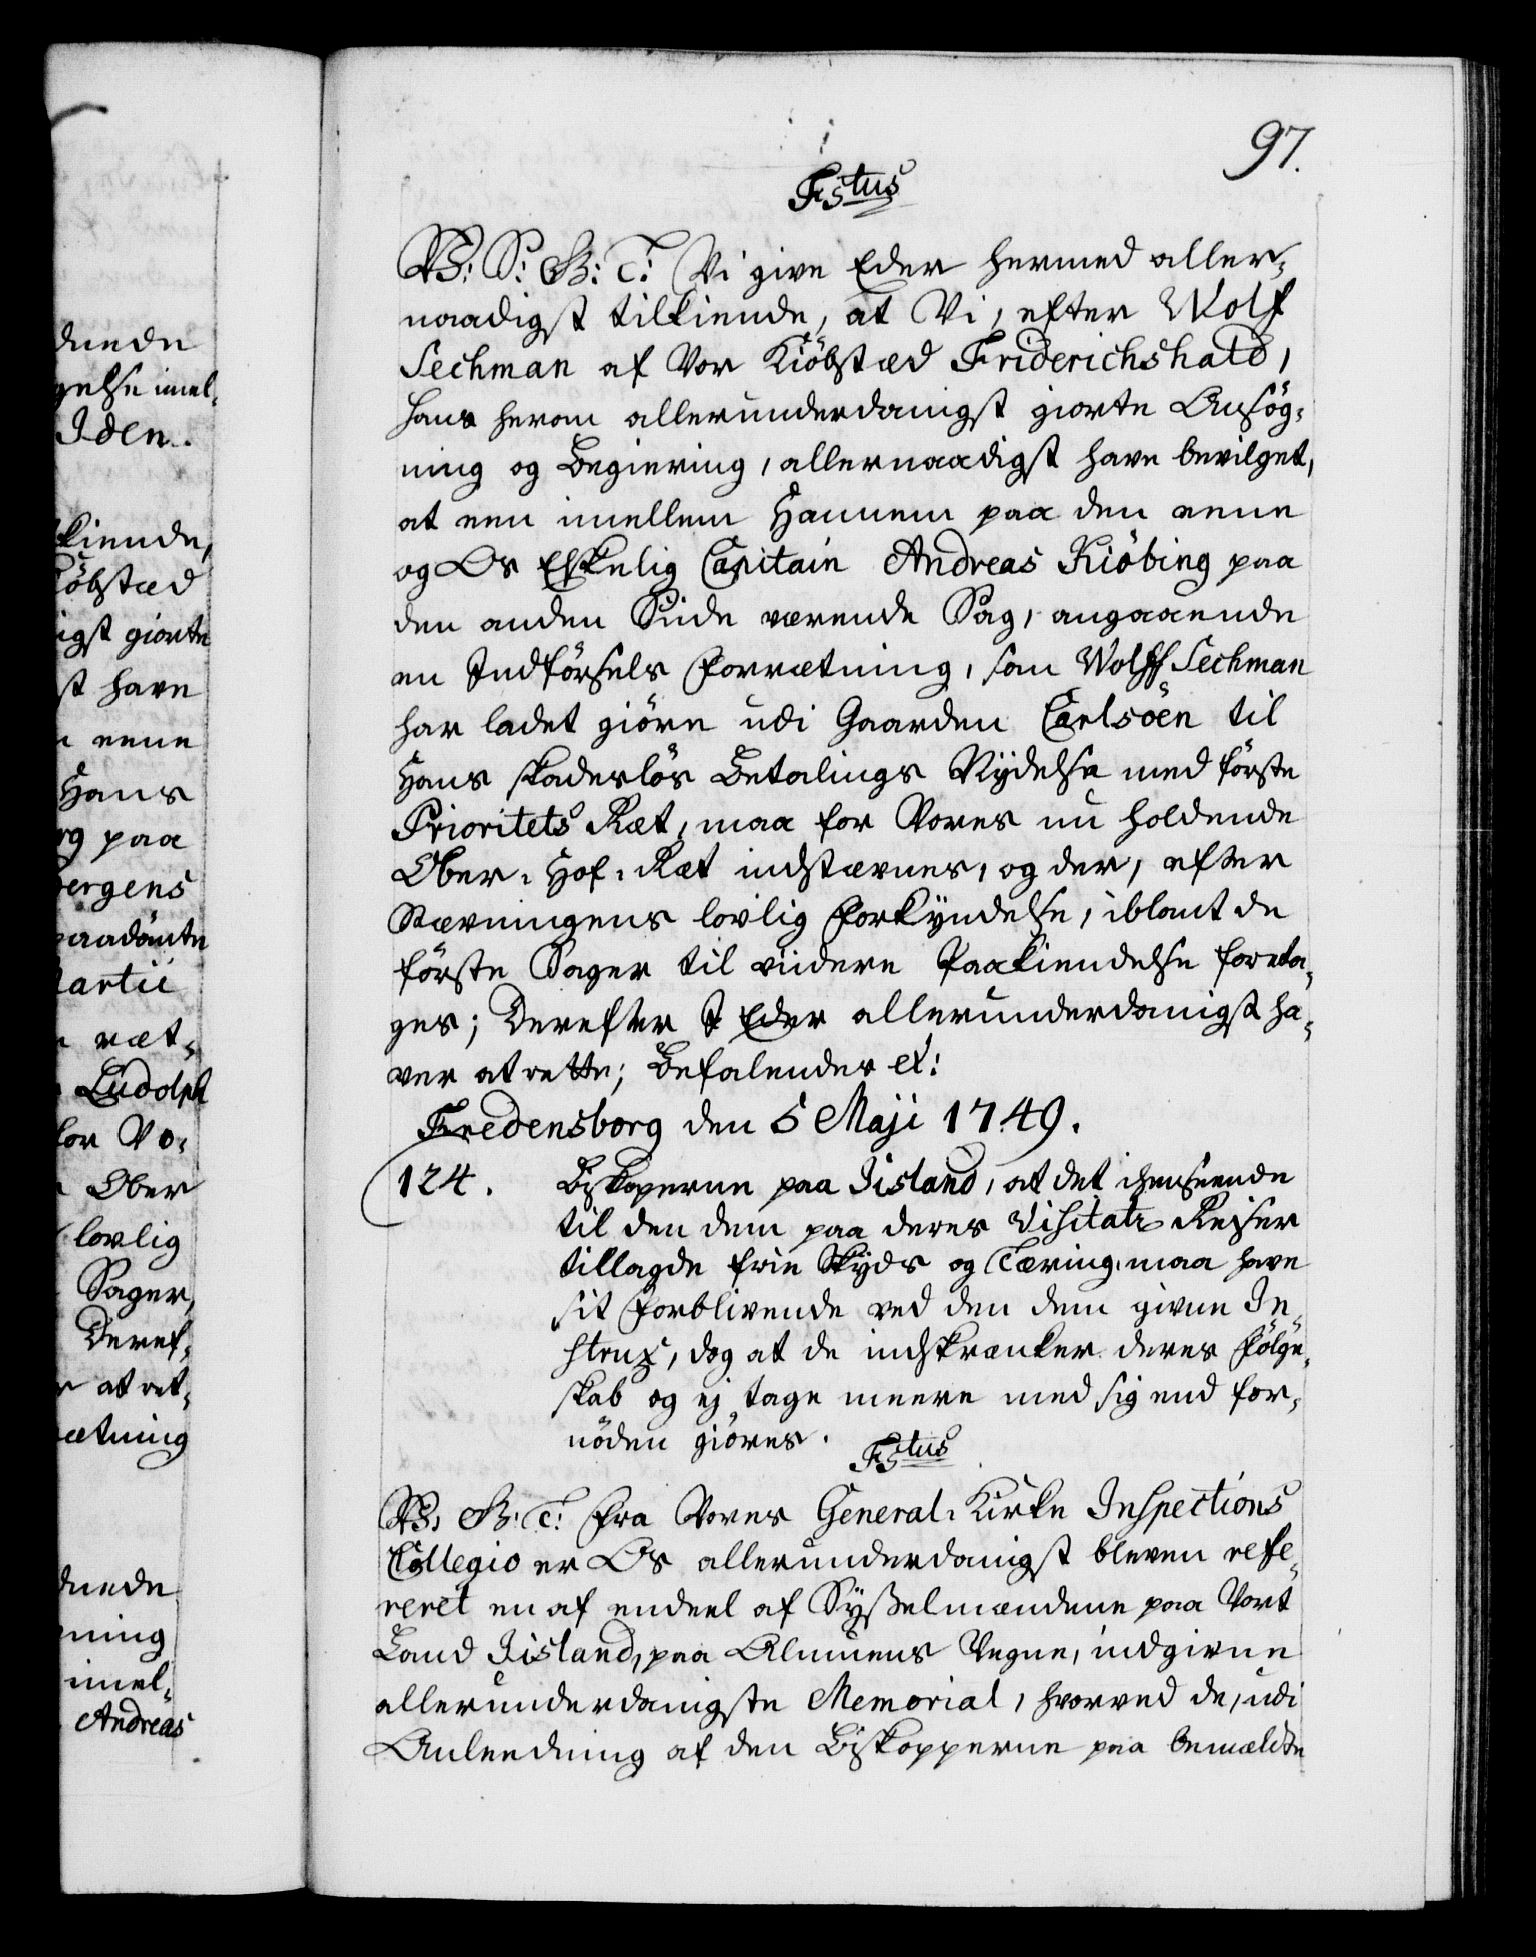 97.
Fstus
W: S: G: T: Vi give Eder hermed aller-
naadigst tilkiende, at Vi, efter Wolf
Sechman af Vor Kiöbstæd Friderichshald,
hans herom allerunderdanigst giorte Ansög-
ning og Begiering, allernaadigst have bevilget,
at een imellem Hannem paa den eene
og Os Elskelig Capitain Andreas Kiöbing paa
den anden Siide værende Sag, angaaende
en Indförsels Forrætning, som Wolff Sechman
har ladet giöre udi Gaarden Carlsöen til
Hans skadeslös Betalings Nÿdelse med förste
Prioritets Ræt, maa for Vores nu holdende
Ober-Hof-Ræt indstævnes, og der, efter
Stævningens lovlig Forkÿndelse, iblant de
förste Sager til viidere Paakiendelse foreta-
ges; Derefter I Eder allerunderdanigst ha-
ver at rette; Befalendes etc:
Fredensborg den 5 Maji 1749.
124. Biskoperne paa Iisland, at det ihenseende
til den dem paa deres Visitats Reiser
tillagde frie Skÿds og Tæring, maa have
sit Forblivende ved den dem givne In-
strux, dog at de indskrænker deres Fölge-
skab og ej tage meere med sig end for-
nöden giöres.
Fstus
W: G: T: Fra Vores General-Kirke Inspections
Collegio er Os allerunderdanigst bleven refe-
reret en af endeel af Sÿsselmændene paa Vort
Land Iisland, paa Almuens Vegne, indgivne
allerunderdanigste Memorial, hvorved de, udi
Anleedning af den Biskopperne paa bemældte
duede
gelse imel-
Iden.
kiende,
iöbstæd
igst giorte
st have
eene
Hans
rg paa
bergens
paadömte
Martii
ræt-
Ludolph
for Vo-
Ober
lovlig
Sager,
Deref-
at ret-
ætning
duede
ning
imel-
Andreas